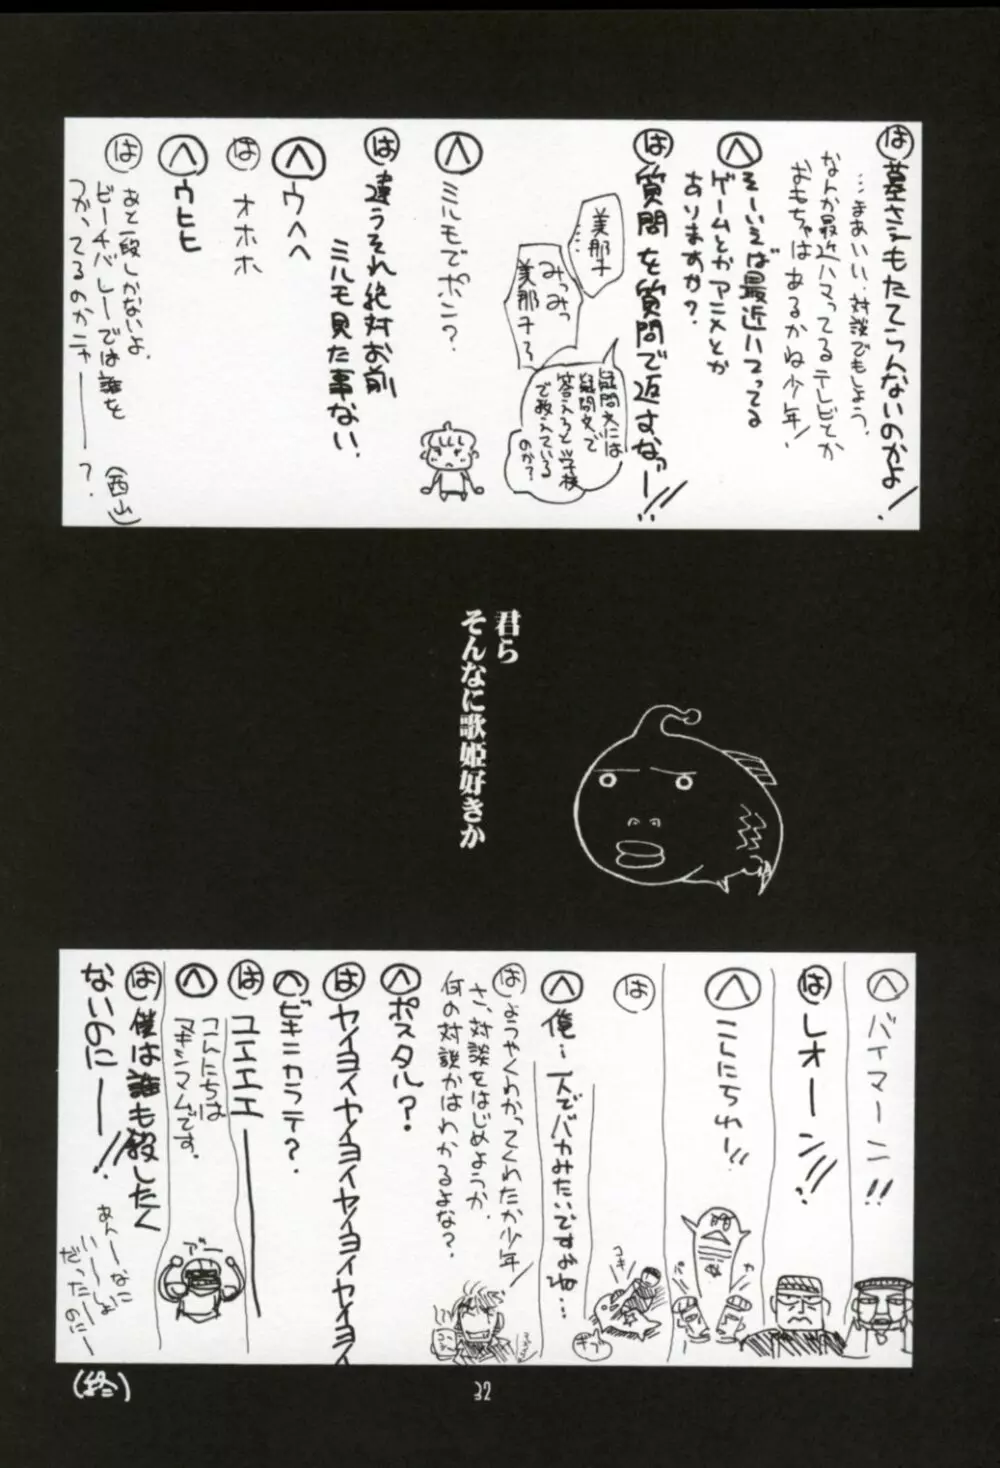 は 墓さえもたてらんないのかよ!
…まぁいい、対談でもしよう。
なんか最近ハマってるテレビとか
おもちゃはあるかね少年!
へ そーいえば最近ハマってる
ゲームとかアニメとか
ありますか?
は 質問を質問で返すなっー!!
美那子…
みっみっ
美那子〜
疑問文には
疑問文で
答えろと学校
で教えている
のか?
へ ミルモでポン?
は 違うそれ絶対お前
ミルモ見た事ない。
へ ウヘヘ
は オホホ
へ ウヒヒ
は あと一段しかないよ。
ビーチバレーでは誰を
つかってるのかニャーーー?
(西山)
君ら
そんなに歌姫好きか
へ バイマーン!!
は レオーン!!
へ こんにちわー!!
は
コキ
キブ
へ 俺…一人でバカみたいですよね…
は ようやくわかってくれたか少年!
さ、対談をはじめようか。
何の対談かはわかるよな?
へ ポスタル?
は ヤイヨイヤイヨイヤイヨイヤイヨイ
へ ビキニカラテ?
は ユエエエーーー
へ こんにちは
マキシマムです。
は 僕は誰も殺したく
ないのにーー!!
あんーなに
いーしょ
だったーのにー
(終)
32